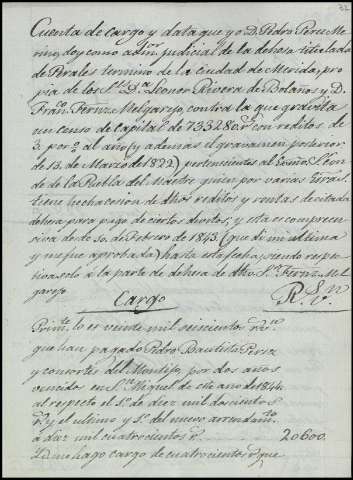 Cuenta de cargo y data que yo D. Pedro Perez Me-
rino, doy como admor. judicial de la dehesa titulada
de Perales termino de la Ciudad de Merida, pro
pia de los S.res D.a Leonor Rivera de Bolaños y D.
Fran.co Fernz Melgarejo, contra la que gravita
un censo de capital de 733280 r. con reditos de
3 por % al año (y ademas el gravamen posterior
de 13 de Marzo de 1822) pertenecientes al Exmo S. Con
de de la Puebla del Maestre quien por varias
tiene hecha cesion de dhos reditos y rentas de citada
dehesa para pago de ciertos; y esta es compren
siva desde 10 de Febrero de 1843 (que di mi ultima
y me fue aprobada) hasta esta fecha, siendo respec
tiva solo a la parte de dehesa de dho S.or Fernz Mel
garejo
R.s v.n
Cargo
Prim.te lo es veinte mil seiscientos r. v.n
que han pagado Pedro Bautista Perez
y consortes del Montijo, por dos años
vencidos en S.n Miguel de este año de 1844
al respecto el 1.o de diez mil doscientos
r. y el ultimo y 1.o del nuevo arrendam.to
a diez mil cuatrocientos r. 20600.
Id. me hago cargo de cuatrocientos r. que